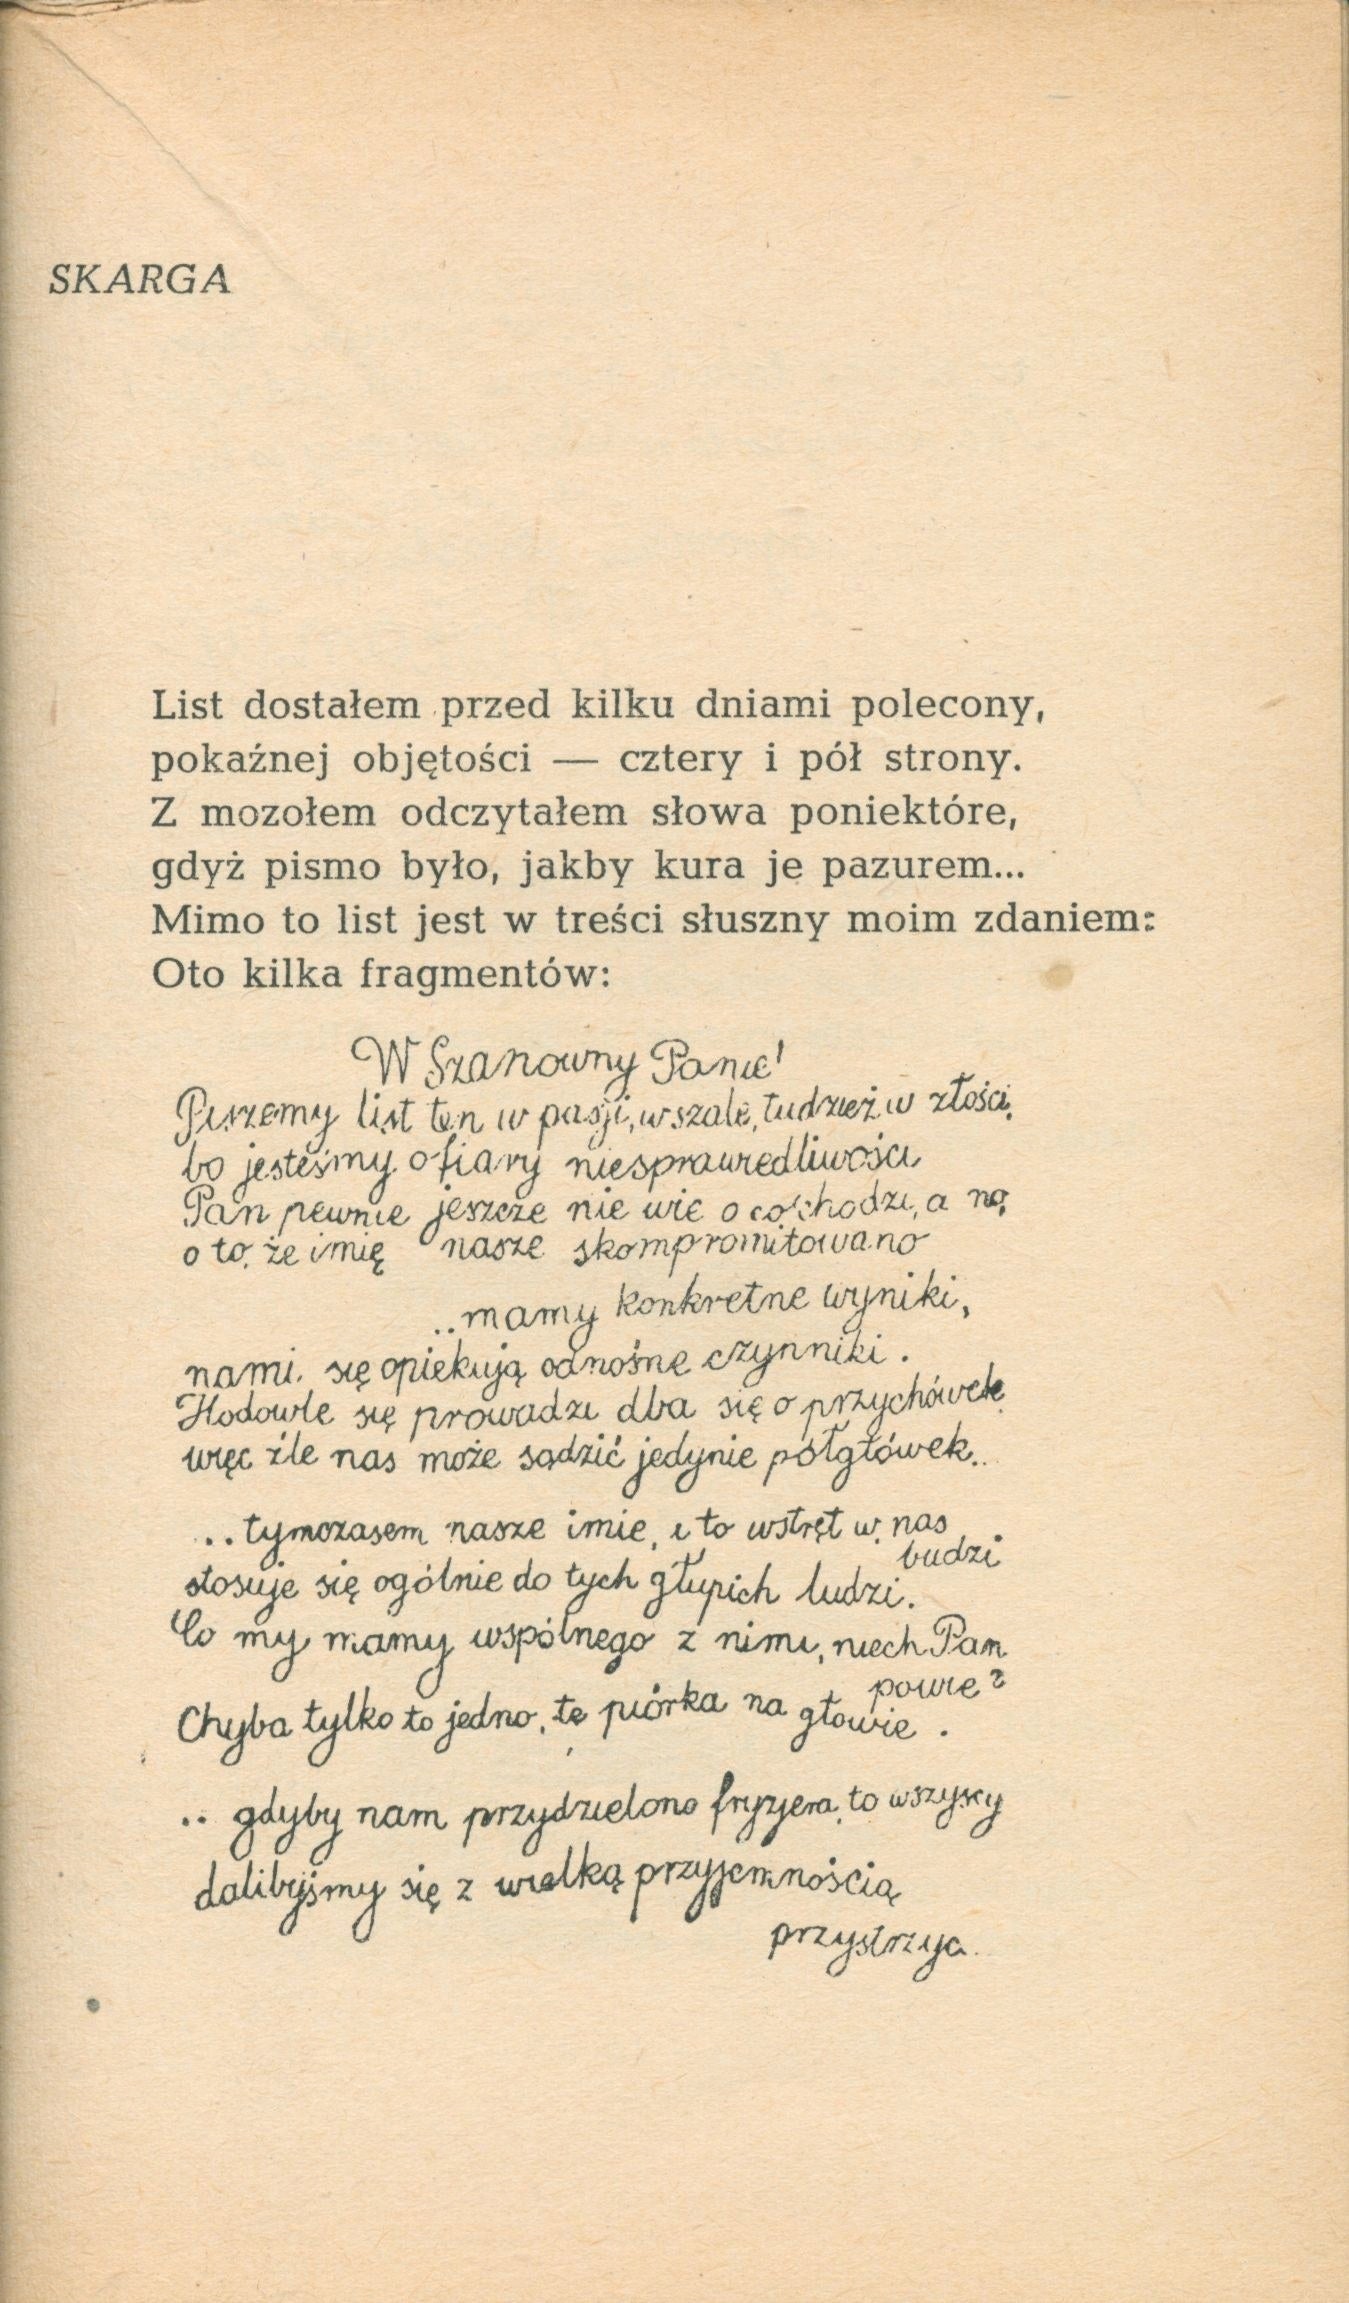 SKARGA
List dostałem przed kilku dniami polecony,
pokaźnej objętości — cztery i pół strony.
Z mozołem odczytałem słowa poniektóre,
gdyż pismo było, jakby kura je pazurem...
Mimo to list jest w treści słuszny moim zdaniem:
Oto kilka fragmentów:
W Szanowny Panie!
Piszemy list ten w pasji, w szale, tudzież w złości,
bo jesteśmy ofiary niesprawiedliwości
Pan pewnie jeszcze nie wie o co chodzi, a no,
o to, że imię nasze skompromitowano
..mamy konkretne wyniki,
nami się opiekują odnośne czynniki.
Hodowle się prowadzi dba się o przychówek
więc źle nas może sądzić jedynie półgłówek..
..tymczasem nasze imie, i to wstręt w nas
budzi
stosuje się ogólnie do tych głupich ludzi.
Co my mamy wspólnego z nimi, niech Pan
powie?
Chyba tylko to jedno, te piórka na głowie.
.. gdyby nam przydzielono fryzjera, to wszyscy
dalibyśmy się z wielką przyjemnością
przystrzyc.